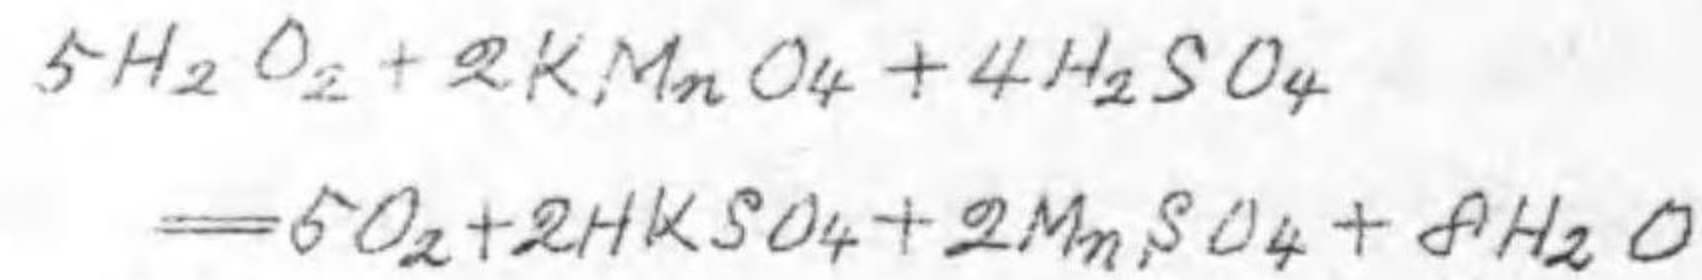 5H₂O₂ + 2KMnO₄ + 4H₂SO₄
= 5O₂ + 2HKSO₄ + 2MnSO₄ + 8H₂O